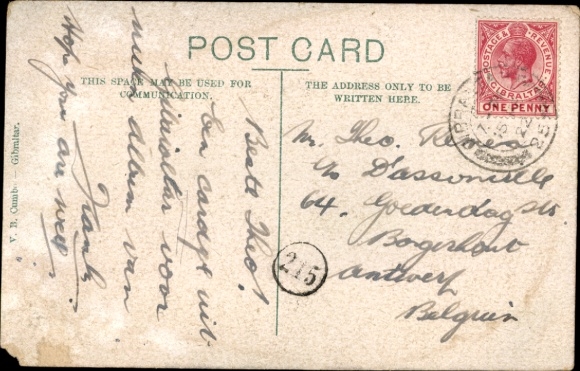 POST CARD
THIS SPACE MAY BE USED FOR
COMMUNICATION.
THE ADDRESS ONLY TO BE
WRITTEN HERE.
POSTAGE & REVENUE
GIBRALTAR
ONE PENNY
Beste Theo!
Een caadje uit
Gibraltar voor
album van
Hope you are well
Frank
Mr. Theo.
c/o D'assonville
64. Goedendag str.
Borgerhout
Antwerp
Belgium
215
V. B. Cumbo - Gibraltar.